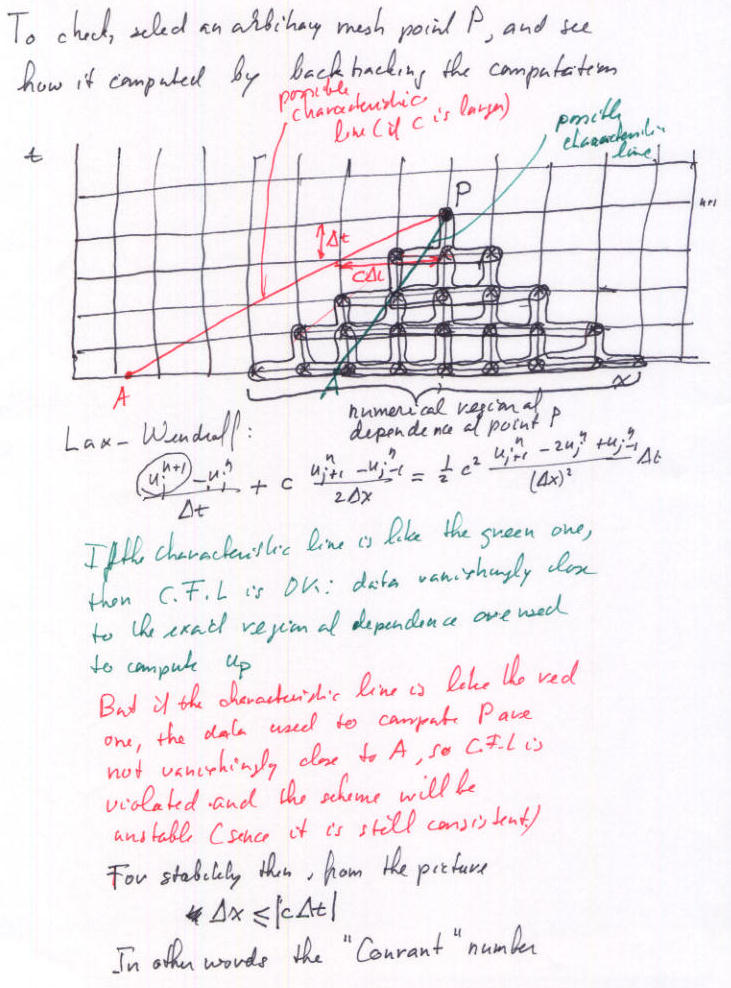 To check, select an arbitrary mesh point P, and see
how it computed by backtracking the computations
possible
characteristic
line (if c is larger)
possible
characteristic
line
t
P
n+1
Δt
cΔt
A
A
x
numerical region of
dependence of point P
Lax-Wendroff:
(u_j^{n+1} - u_j^n)/Δt + c (u_{j+1}^n - u_{j-1}^n)/(2Δx) = 1/2 c² (u_{j+1}^n - 2u_j^n + u_{j-1}^n)/(Δx)² Δt
If the characteristic line is like the green one,
then C.F.L is OK: data vanishingly close
to the exact region of dependence are used
to compute up
But if the characteristic line is like the red
one, the data used to compute P are
not vanishingly close to A, so C.F.L is
violated and the scheme will be
unstable (sence it is still consistent)
For stability then, from the picture
Δx ≤ |cΔt|
In other words the "Courant" number